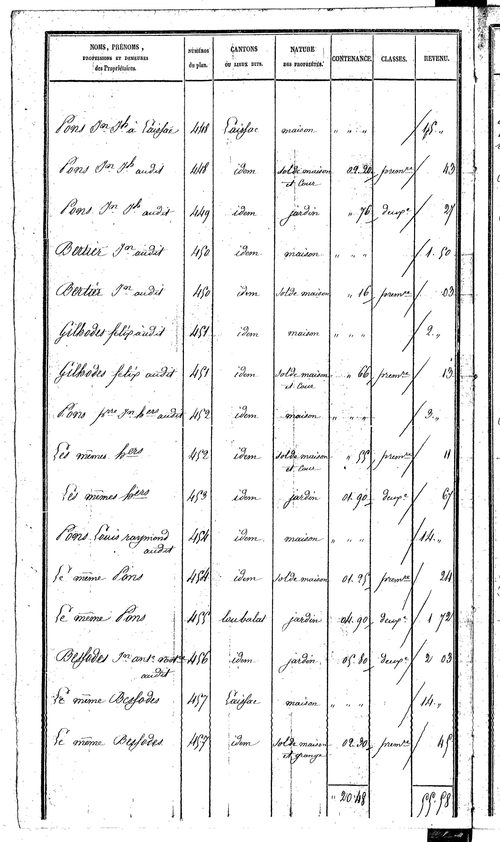 NOMS, PRÉNOMS, PROFESSIONS ET DEMEURES des Propriétaires. NUMÉROS du plan. CANTONS OU LIEUX DITS. NATURE DES PROPRIÉTÉS. CONTENANCE. CLASSES. REVENU.
Pons Jn Jh à Laissac 448 Laissac maison " " " 45 "
Pons Jn Jh audit 448 idem sol de maison et Cour 02.20 premre 43
Pons Jn Jh audit 449 idem jardin " 76 deuxe 27
Bertier Jn audit 450 idem maison " " " 1.50
Bertier Jn audit 450 idem sol de maison " 16 premre 03
Gilhodes felix audit 451 idem maison " " " 2 "
Gilhodes felix audit 451 idem sol de maison et Cour " 66 premre 13
Pons pre Jn hers audit 452 idem maison " " " 3 "
Les mêmes hers 452 idem sol de maison et Cour " 55 premre 11
Les mêmes hers 453 idem jardin 01.90 deuxe 67
Pons Louis raymond audit 454 idem maison " " " 14 "
Le même Pons 454 idem sol de maison 01.25 premre 24
Le même Pons 455 loubalat jardin 04.90 deuxe 1 72
Bessodes Jn ant. audit 456 idem jardin 05.80 deuxe 2 03
Le même Bessodes 457 Laissac maison " " " 14 "
Le même Bessodes 457 idem sol de maison et grange 02.30 premre 45
" 20.48 55.58